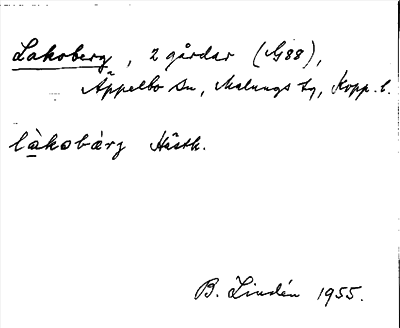 Lakoberg, 2 gårdar (G88),
Äppelbo sn, Malungs tg, Kopp. l.
làkobàrg Hästk.
B. Lindén 1955.